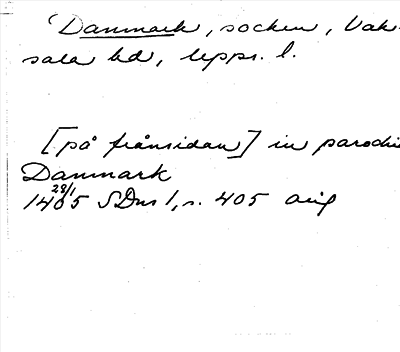 Danmark, socken, Vak-
sala hd, Upps. l.
[på frånsidan] in parochia
Danmark
28/1
1405 SDns 1, s. 405 orig